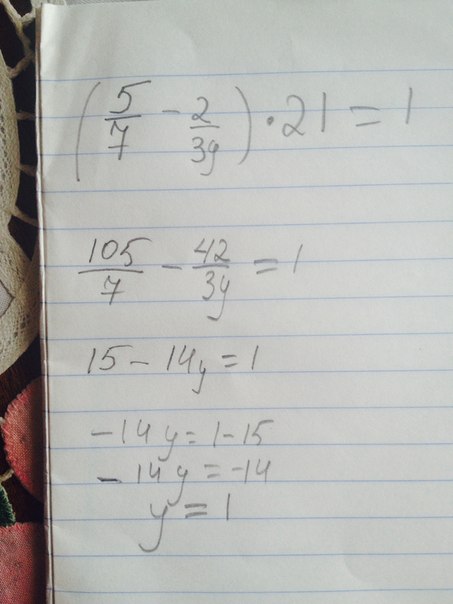 (5/7 - 2/3y) · 21 = 1
105/7 - 42/3y = 1
15 - 14y = 1
-14y = 1-15
-14y = -14
y = 1